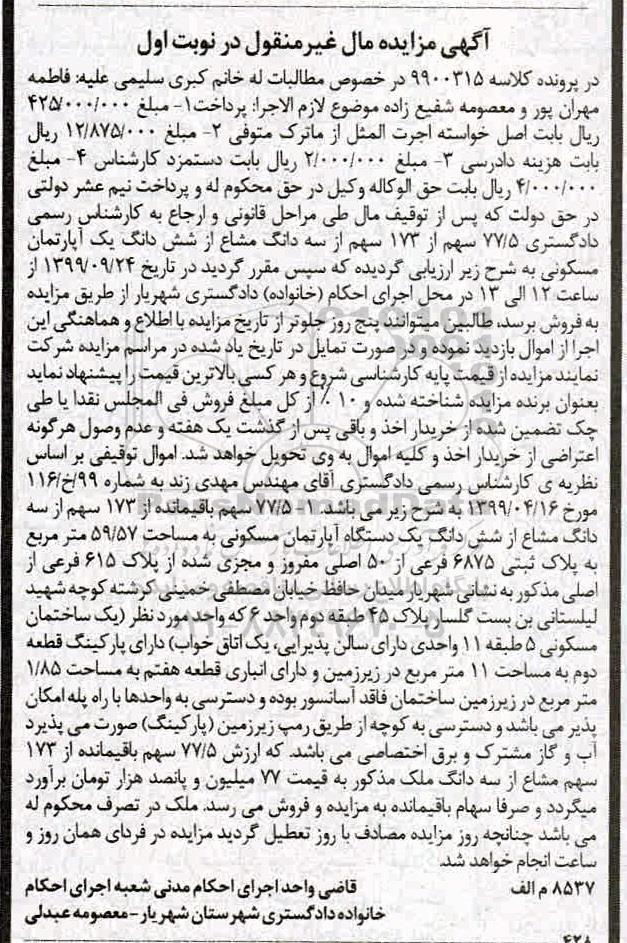 آگهی مزایده مال غیرمنقول در نوبت اول
در پرونده کلاسه ۹۹۰۰۳۱۵ در خصوص مطالبات له خانم کبری سلیمی علیه: فاطمه
مهران پور و معصومه شفیع زاده موضوع لازم الاجرا: پرداخت۱- مبلغ ۴۲۵/۰۰۰/۰۰۰
ریال بابت اصل خواسته اجرت المثل از ماترک متوفی ۲- مبلغ ۱۲/۸۷۵/۰۰۰ ریال
بابت هزینه دادرسی ۳- مبلغ ۲/۰۰۰/۰۰۰ ریال بابت دستمزد کارشناس ۴- مبلغ
۴/۰۰۰/۰۰۰ ریال بابت حق الوکاله وکیل در حق محکوم له و پرداخت نیم عشر دولتی
در حق دولت که پس از توقیف مال طی مراحل قانونی و ارجاع به کارشناس رسمی
دادگستری ۷۷/۵ سهم از ۱۷۳ سهم از سه دانگ مشاع از شش دانگ یک آپارتمان
مسکونی به شرح زیر ارزیابی گردیده که سپس مقرر گردید در تاریخ ۱۳۹۹/۰۹/۲۴ از
ساعت ۱۲ الی ۱۳ در محل اجرای احکام (خانواده) دادگستری شهریار از طریق مزایده
به فروش برسد، طالبین میتوانند پنج روز جلوتر از تاریخ مزایده با اطلاع و هماهنگی این
اجرا از اموال بازدید نموده و در صورت تمایل در تاریخ یاد شده در مراسم مزایده شرکت
نمایند مزایده از قیمت پایه کارشناسی شروع و هر کسی بالاترین قیمت را پیشنهاد نماید
بعنوان برنده مزایده شناخته شده و ۱۰ ٪ از کل مبلغ فروش فی المجلس نقدا یا طی
چک تضمین شده از خریدار اخذ و باقی پس از گذشت یک هفته و عدم وصول هرگونه
اعتراضی از خریدار اخذ و کلیه اموال به وی تحویل خواهد شد. اموال توقیفی بر اساس
نظریه ی کارشناس رسمی دادگستری آقای مهندس مهدی زند به شماره ۹۹/خ/۱۱۶
مورخ ۱۳۹۹/۰۴/۱۶ به شرح زیر می باشد. ۱- ۷۷/۵ سهم باقیمانده از ۱۷۳ سهم از سه
دانگ مشاع از شش دانگ یک دستگاه آپارتمان مسکونی به مساحت ۵۹/۵۷ متر مربع
به پلاک ثبتی ۶۸۷۵ فرعی از ۵۰ اصلی مفروز و مجزی شده از پلاک ۶۱۵ فرعی از
اصلی مذکور به نشانی شهریار میدان حافظ خیابان مصطفی خمینی کرشته کوچه شهید
لیلستانی بن بست گلسار پلاک ۴۵ طبقه دوم واحد ۶ که واحد مورد نظر (یک ساختمان
مسکونی ۵ طبقه ۱۱ واحدی دارای سالن پذیرایی، یک اتاق خواب) دارای پارکینگ قطعه
دوم به مساحت ۱۱ متر مربع در زیرزمین و دارای انباری قطعه هفتم به مساحت ۱/۸۵
متر مربع در زیرزمین ساختمان فاقد آسانسور بوده و دسترسی به واحدها با راه پله امکان
پذیر می باشد و دسترسی به کوچه از طریق رمپ زیرزمین (پارکینگ) صورت می پذیرد
آب و گاز مشترک و برق اختصاصی می باشد. که ارزش ۷۷/۵ سهم باقیمانده از ۱۷۳
سهم مشاع از سه دانگ ملک مذکور به قیمت ۷۷ میلیون و پانصد هزار تومان برآورد
میگردد و صرفا سهام باقیمانده به مزایده و فروش می رسد. ملک در تصرف محکوم له
می باشد چنانچه روز مزایده مصادف با روز تعطیل گردید مزایده در فردای همان روز و
ساعت انجام خواهد شد.
۸۵۳۷ م الف قاضی واحد اجرای احکام مدنی شعبه اجرای احکام
خانواده دادگستری شهرستان شهریار -معصومه عبدلی